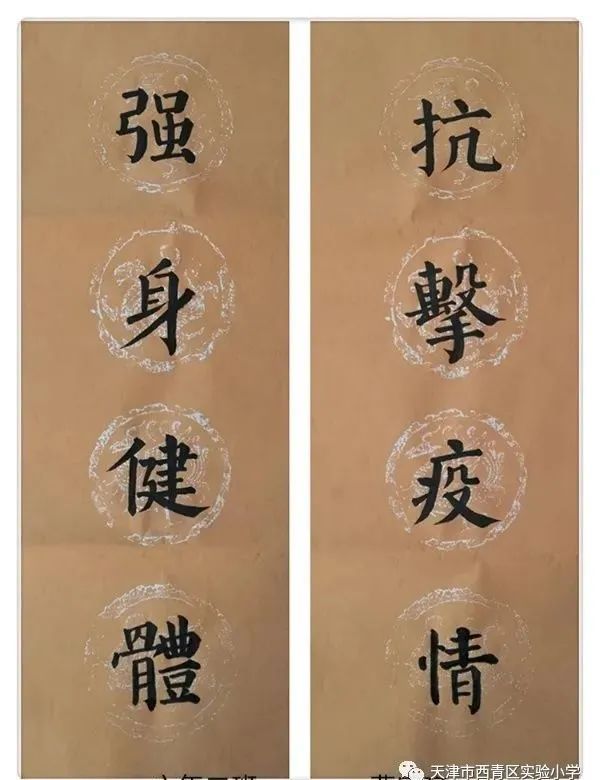 抗擊疫情
强身健體
天津市西青区实验小学